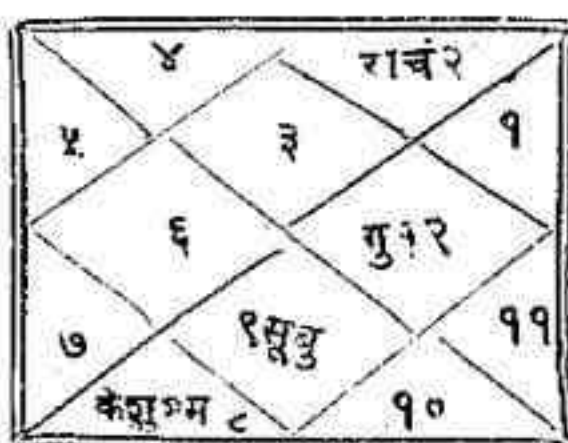 ४ राचं२
५ ३ १
६ गु१२
७ ९सूबु ११
केशु म ८ १०